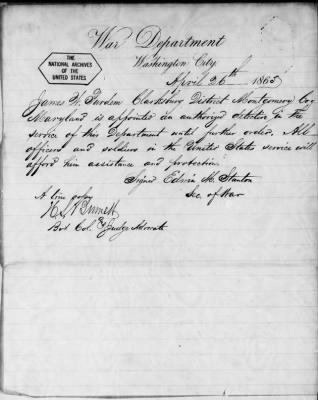 War Department
THE
NATIONAL ARCHIVES
OF THE
UNITED STATES
Washington City.
April 26th 1865
James W. Purdom Clarksburg District Montgomery Co
Maryland is appointed an authorized detective in the
service of this Department until further order. All
officers and soldiers in the United States service will
afford him assistance and protection.
Signed Edwin M. Stanton
Sec. of War
A true copy
Burnett
Bvt Col. & Judge Advocate